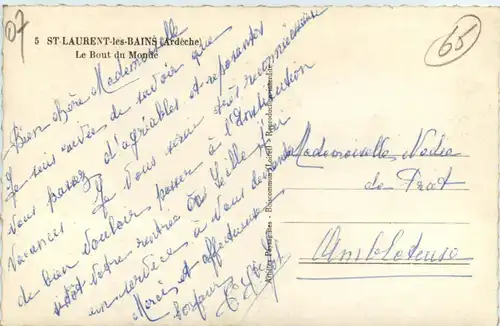 07
5 ST-LAURENT-les-BAINS (Ardèche)
Le Bout du Monde
65
Bien chère Mademoiselle
Je suis ravie de savoir que
vous passez d'agréables et reposantes
vacances. Je vous serai très reconnaissante
de bien vouloir passer à l'Institution
sitôt votre rentrée à Lille j'ai
un service à vous demander
Merci et affectueux
bonjour
Mademoiselle Nadia
de Prat
Ambleteuse